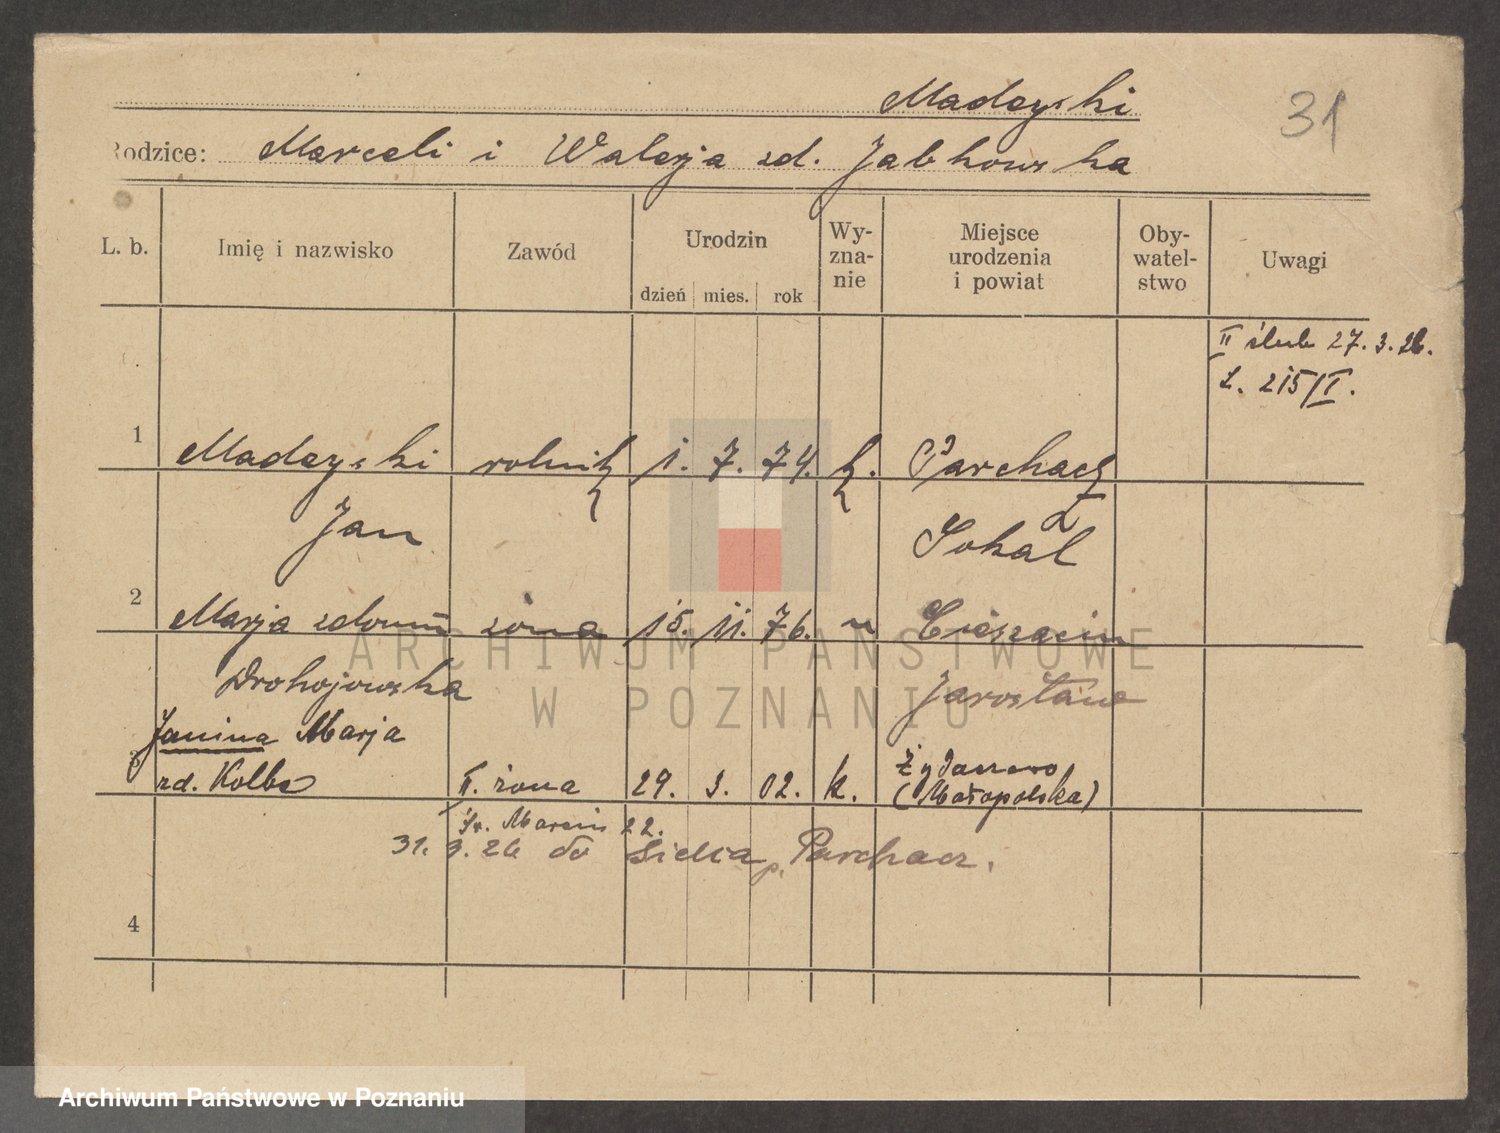 Madeyski
31
Rodzice: Marceli i Walerja zd. Jabłkowska
L. b. Imię i nazwisko Zawód Urodzin dzień mies. rok Wy-zna-nie Miejsce urodzenia i powiat Oby-watel-stwo Uwagi
II ślub 27. 3. 26.
L. 215/I.
1 Madeyski rolnik 1. 7. 74. k. Parchacz
Jan Sokal
2 Marja zdomu żona 15. 11. 76. " Cieszacin
Drohojowska Jarosław
Janina Marja
3 zd. Kolbe II. żona 29. 3. 02. k. Żydaczewo
(Małopolska)
Św. Marcin 22.
31. 3. 26 do Sielca p. Parchacz.
4
ARCHIWUM PAŃSTWOWE
W POZNANIU
Archiwum Państwowe w Poznaniu